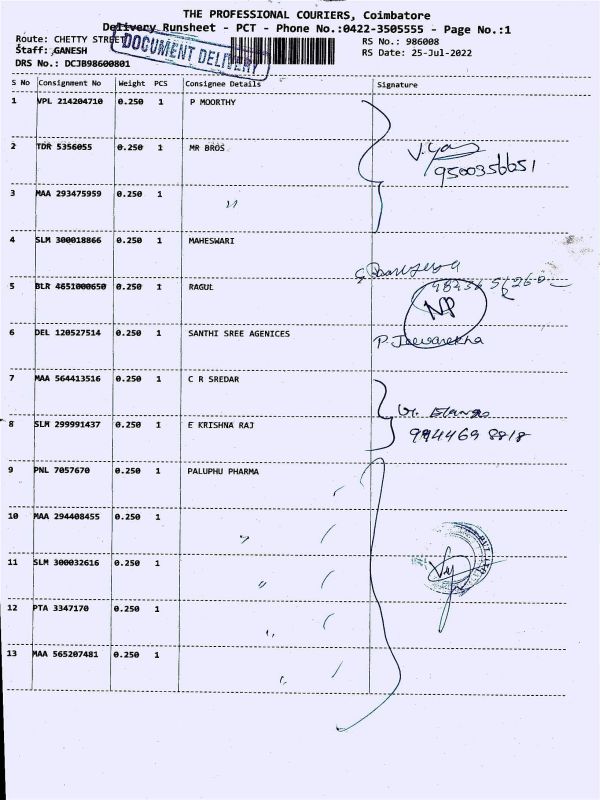 THE PROFESSIONAL COURIERS, Coimbatore
Delivery Runsheet - PCT - Phone No.:0422-3505555 - Page No.:1
Route: CHETTY STREET
DOCUMENT DELIVERY
RS No.: 986008
Staff: GANESH
RS Date: 25-Jul-2022
DRS No.: DCJB98600801
S No Consignment No Weight PCS Consignee Details Signature
1 VPL 214204710 0.250 1 P MOORTHY
2 TDR 5356055 0.250 1 MR BROS
9500356651
3 MAA 293475959 0.250 1 "
4 SLM 300018866 0.250 1 MAHESWARI
5 BLR 4651000650 0.250 1 RAGUL
NP
6 DEL 120527514 0.250 1 SANTHI SREE AGENICES
P. Jeevarekha
7 MAA 564413516 0.250 1 C R SREDAR
8 SLM 299991437 0.250 1 E KRISHNA RAJ
994469 8818
9 PNL 7057670 0.250 1 PALUPHU PHARMA
10 MAA 294408455 0.250 1 "
11 SLM 300032616 0.250 1 "
12 PTA 3347170 0.250 1 "
13 MAA 565207481 0.250 1 "